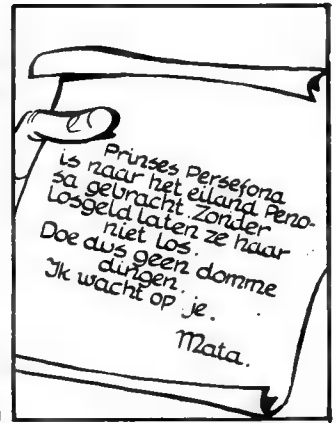 Prinses Persefona
is naar het eiland Peno-
sa gebracht. Zonder
losgeld laten ze haar
niet los.
Doe dus geen domme
dingen.
Ik wacht op je.
Mata.